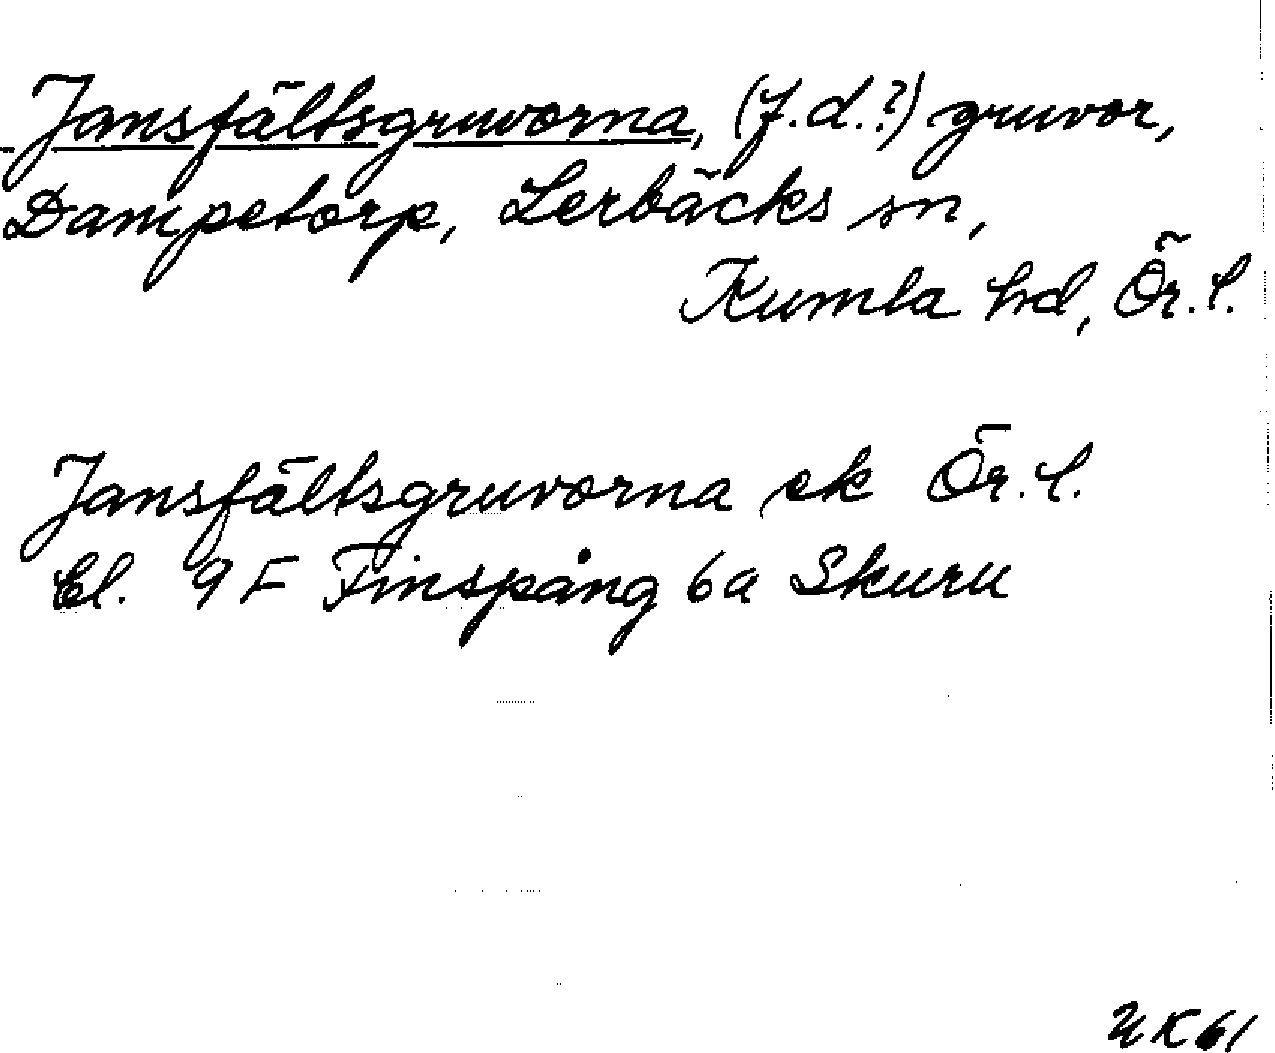 Jansfältsgruvorna, (f.d.?) gruvor,
Dampetorp, Lerbäcks sn,
Kumla hd, Ör. l.
Jansfältsgruvorna ek Ör. l.
Bl. 9 F Finspång 6a Skuru
UK 61